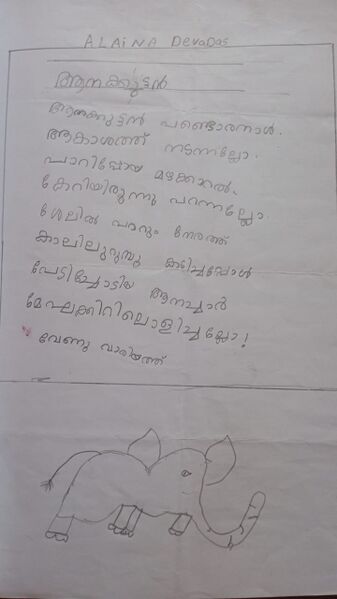 ALAiNA DevaDas
ആനക്കുട്ടൻ
ആനക്കുട്ടൻ പണ്ടൊരുനാൾ.
ആകാശത്ത് നടന്നല്ലോ.
പാറിപ്പോയ മഴക്കാറിൽ.
കേറിയിരുന്നു പറന്നല്ലോ.
ശേലിൽ പറക്കും നേരത്ത്
കാലിലുറുമ്പു കടിച്ചപ്പോൾ
പേടിച്ചോടിയ ആനച്ചാർ
മേഘക്കീറിലൊളിച്ചല്ലോ!
വേണു വാരിയത്ത്